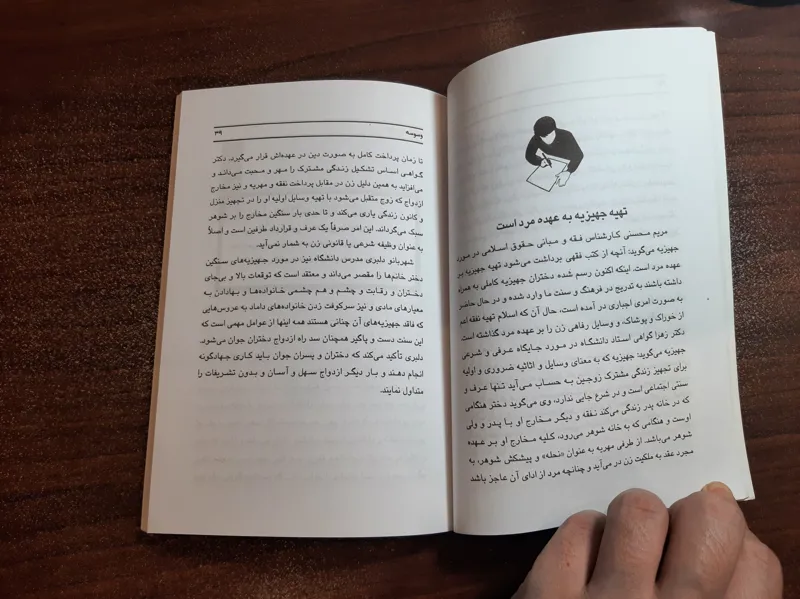 تهیه جهیزیه به عهده مرد است
مریم محسنی کارشناس فقه و مبانی حقوق اسلامی در مورد
جهیزیه می‌گوید: آنچه از کتب فقهی برداشت می‌شود تهیه جهیزیه بر
عهده مرد است. اینکه اکنون رسم شده دختران جهیزیه کاملی به همراه
داشته باشند به تدریج در فرهنگ و سنت ما وارد شده و در حال حاضر
به صورت امری اجباری در آمده است، حال آن که اسلام تهیه نفقه اعم
از خوراک و پوشاک، و وسایل رفاهی زن را بر عهده مرد گذاشته است
دکتر زهرا گواهی استاد دانشگاه در مورد جایگاه عرفی و شرعی
جهیزیه می‌گوید: جهیزیه که به معنای وسایل و اثاثیه ضروری و اولیه
برای تجهیز زندگی مشترک زوجین به حساب می‌آید تنها عرف و
سنتی اجتماعی است و در شرع جایی ندارد، وی می‌گوید دختر هنگامی
که در خانه پدر زندگی می‌کند نفقه و دیگر مخارج او با پدر و ولی
اوست و هنگامی که به خانه شوهر می‌رود، کلیه مخارج او بر عهده
شوهر می‌باشد. از طرفی مهریه به عنوان «نحله» و پیشکش شوهر، به
مجرد عقد به ملکیت زن در می‌آید و چنانچه مرد از ادای آن عاجز باشد
وسوسه
۳۹
تا زمان پرداخت کامل به صورت دین در عهده‌اش قرار می‌گیرد. دکتر
گواهی اساس تشکیل زندگی مشترک را مهر و محبت می‌داند و
می‌افزاید به همین دلیل زن در مقابل پرداخت نفقه و مهریه و نیز مخارج
ازدواج که زوج متقبل می‌شود با تهیه وسایل اولیه او را در تجهیز منزل
و کانون زندگی یاری می‌کند و تا حدی بار سنگین مخارج را بر شوهر
سبک می‌گرداند. این امر صرفاً یک عرف و قرارداد طرفین است و اصلاً
به عنوان وظیفه شرعی یا قانونی زن به شمار نمی‌آید.
شهربانو دلبری مدرس دانشگاه نیز در مورد جهیزیه‌های سنگین
دختر خانم‌ها را مقصر می‌داند و معتقد است که توقعات بالا و بی‌جای
دختران و رقابت و چشم و هم چشمی خانواده‌ها و بهادادن به
معیارهای مادی و نیز سرکوفت زدن خانواده‌های داماد به عروس‌هایی
که فاقد جهیزیه‌های آن چنانی هستند همه اینها از عوامل مهمی است که
این سنت دست و پاگیر همچنان سد راه ازدواج دختران جوان می‌شود.
دلبری تأکید می‌کند که دختران و پسران جوان باید کاری جهادگونه
انجام دهند و بار دیگر ازدواج سهل و آسان و بدون تشریفات را
متداول نمایند.